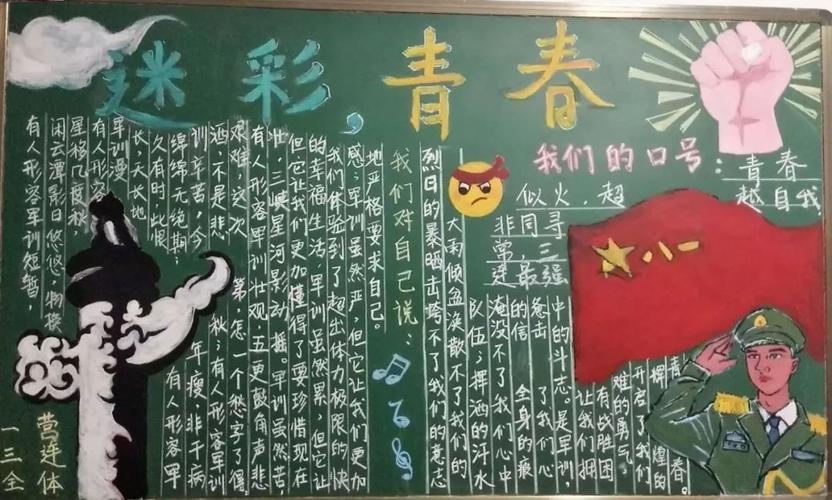 迷彩,青春
我们的口号:青春
似火,超越自我,
非同寻
常,三
连最强
有人形容军训短暂,
闲云潭影日悠悠,物换
星移几度秋。
有人形容
军训漫
长,天长地
久有时,此恨
绵绵无绝期;
有人形容军
训辛苦,今年瘦,非干病
酒,不是悲秋;有人形容军训
艰难,这次第,怎一个愁字了得。
有人形容军训壮观,五更鼓角声悲
壮,三峡星河影动摇。军训虽然苦,
但它让我们更加懂得了要珍惜现在
的幸福生活;军训虽然累,但它让
我们体验到了超出体力极限的快
感;军训虽然严,但它让我们更加
地严格要求自己。
我们对自己说:
烈日的暴晒击垮不了我们的意志
大雨倾盆涣散不了我们的
队伍;挥洒的汗水
淹没不了我们心中
的信 全身的疲
击 了我们心
中的斗志。是军训,
让我们拥
有战胜困
难的勇气
开启了我们
辉煌的
青春。
八一
一营
三连
全体